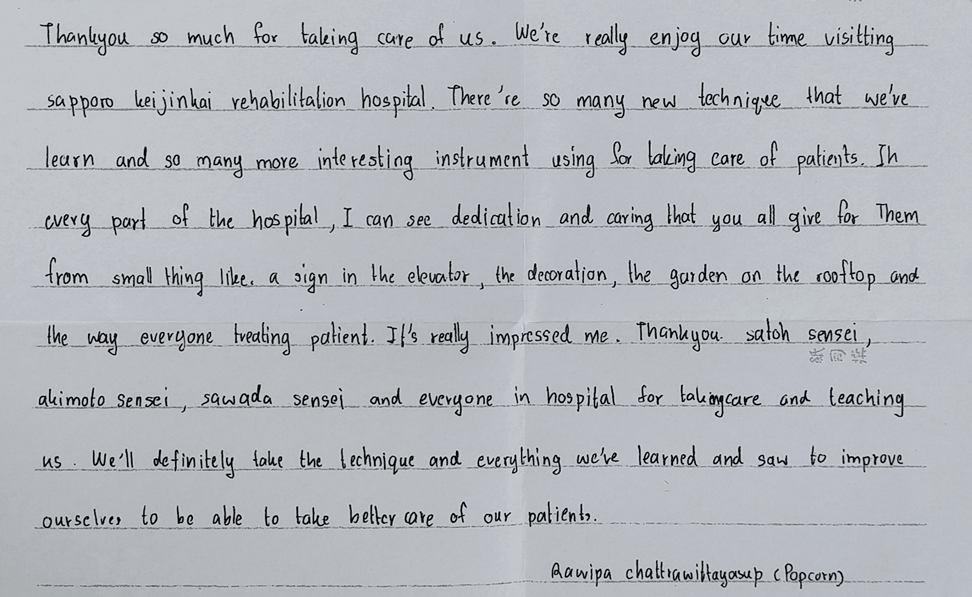 Thankyou so much for taking care of us. We're really enjoy our time visitting
sapporo keijinkai rehabilitation hospital. There're so many new technique that we've
learn and so many more interesting instrument using for taking care of patients. In
every part of the hospital, I can see dedication and caring that you all give for Them
from small thing like. a sign in the elevator, the decoration, the garden on the rooftop and
the way everyone treating patient. It's really impressed me. Thankyou. satoh sensei,
akimoto sensei, sawada sensei and everyone in hospital for takingcare and teaching
us. We'll definitely take the technique and everything we've learned and saw to improve
ourselves to be able to take better care of our patients.
Rawipa chattrawittayasup (Popcorn)